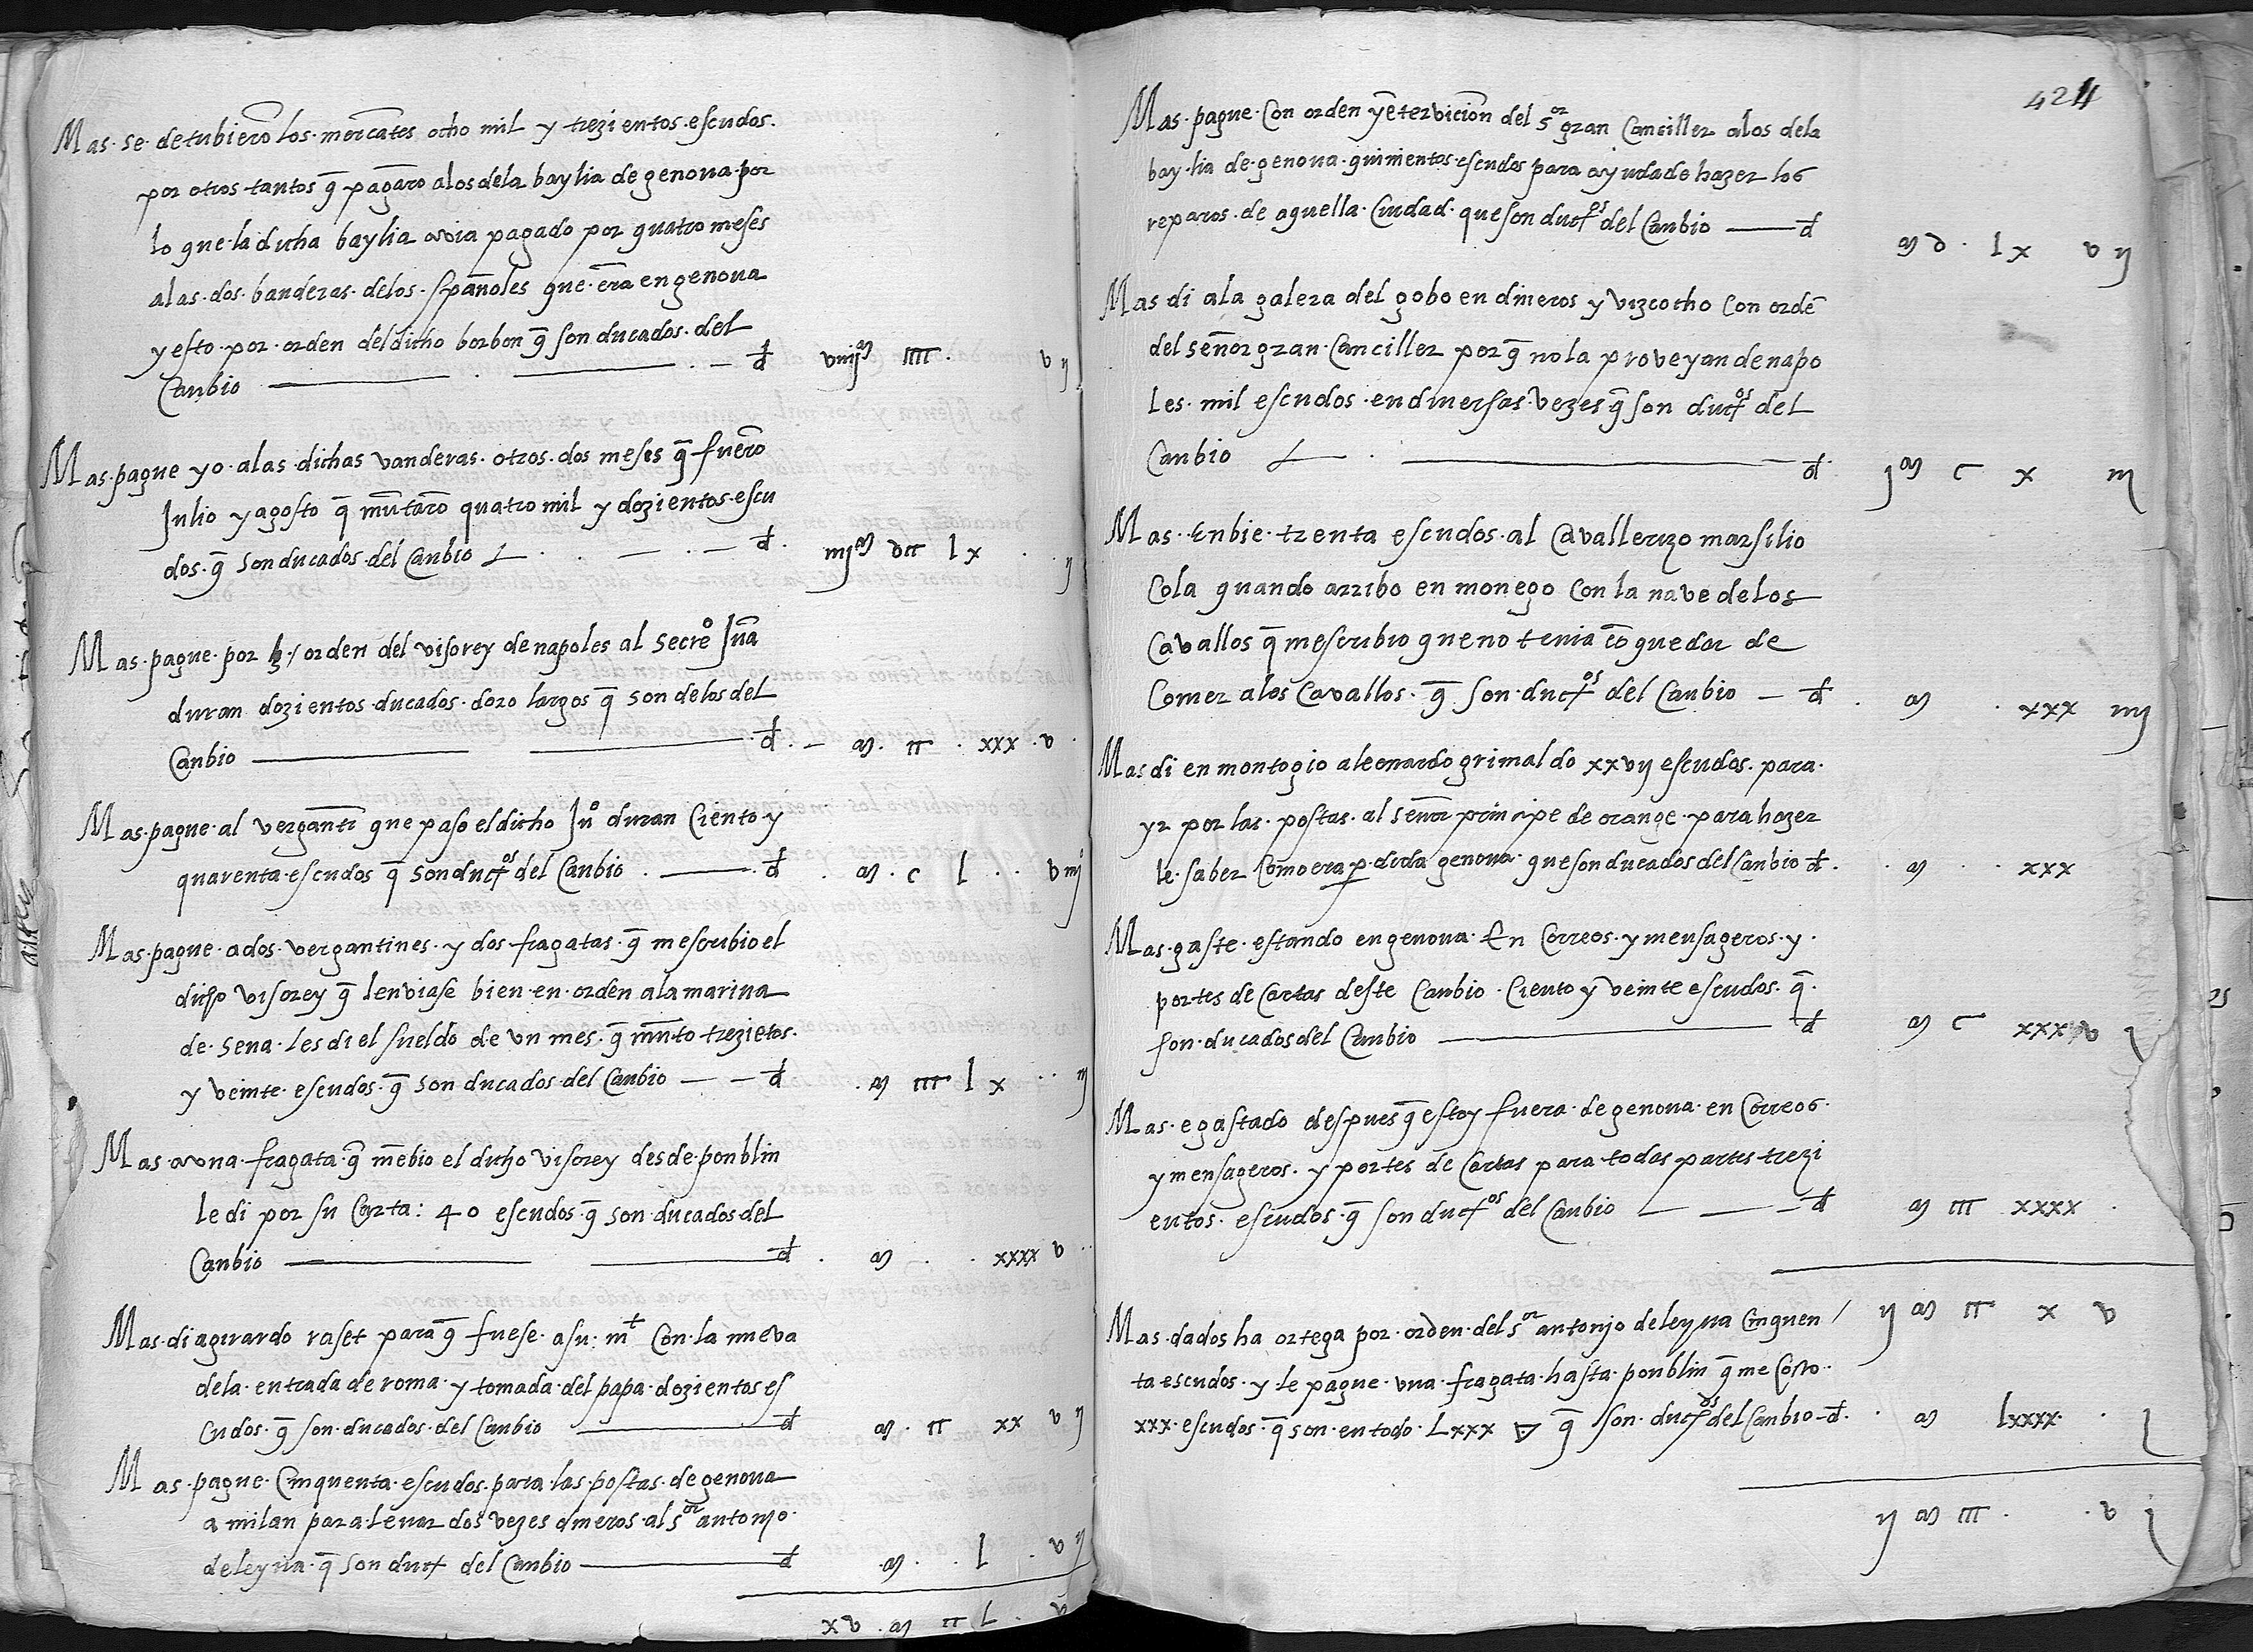 Mas. se. detubierō los. mercātes ocho mil y trezientos. escudos.
por otros tantos q̄ pagarō alos dela baylia de genoua. por
lo que. la dicha baylia avia pagado por quatro meses
alas. dos. banderas. delos. spañoles que. erā en genoua
y esto. por. orden del dicho borbon q̄ son ducados. del
Canbio ——— . ——— . — d viiijɱ iii . v ij
Mas. pague yo. alas. dichas vanderas. otros. dos meses q̄ fuerō
Julio y agosto q̄ mūtarō quatro mil y dozientos. escu
dos. q̄ son ducados. del Canbio . . — . — d. iiijɱ dcc l x . . ij
Mas. pague. por / orden del visorey de napoles al secreº Juā
duran dozientos. ducados. doro largos q̄ son delos del
Canbio ——— ——— d. — ɱ. ii . xxx . v .
Mas. pague. al vergantī que paso el dicho Juº duran Ciento. y
quarenta. escudos q̄ son ducos del Canbio . ——— d . ɱ. c l . . v iiij
Mas. pague. ados. vergantines. y dos fragatas. q̄ mescribio el
dicho visorey q̄ lenviase bien. en. orden ala marina
de. sena. les di el sueldo de vn mes. q̄ mūto trezietos.
y veinte. escudos. q̄ son ducados. del Canbio — — d . ɱ iii l x . . iij
Mas. a vna. fragata. q̄ mēbio el dicho visorey desde. ponblin
le di por su Carta: 40 escudos. q̄ son. ducados. del
Canbio ——— ——— d . ɱ . . xxxx v . .
Mas. di a guardo raset para q̄ fuese. a su: mt Con. la nueva
dela. entrada de roma. y tomada. del papa. dozientos es
Cudos. q̄ son. ducados. del Canbio ——— d ɱ . ii xx v ij
Mas. pague. Cinquenta. escudos. para. las. postas. de genoua
a milan para. levar dos vezes dineros. al sor antonjo.
deleyua. q̄ son duct del Canbio ——— d ɱ . . l . v ij
xv . ɱ ii l . v
424
Mas. pague. Con orden y ētervicion del sor gran Canciller alos dela
bay. lia de. genoua. quinientos. escudos para ayuda de hazer los
reparos. de aquella. Ciudad. que son ducos del Canbio ——— d ɱ d . l x v ij
Mas di ala galera del gobo en dineros y vizcocho Con ordē
del señor gran. Canciller por q̄ no la proveyan de napo
les. mil escudos. en diversas. vezes q̄ son ducos del
Canbio . ——— d j ɱ c x iij
Mas. Enbie. trenta escudos. al Cavallerizo marsilio
Cola quando arribo en monego Con la nave delos
Cavallos q̄ mescribio que no tenia cō que dar de
Comer alos Cavallos. q̄ son. ducos del Canbio — d . ɱ . xxx iiij
Mas di en montogio a leonardo grimaldo xxvij escudos. para.
yr por las. postas. al señor principe de orange. para hazer
le. saber Como era p. dida genoua. que son ducados del Canbio d. . ɱ . . xxx
Mas. gaste. estando en genoua. En Correos. y mensageros. y.
portes de Cartas deste Canbio. Ciento y veinte escudos. q̄.
son. ducados del Canbio ——— d ɱ c xxx v j
Mas. e gastado despues q̄ estoy fuera. de genoua. en Correos.
y mensageros. y portes de Cartas para todas partes trezi
entos. escudos. q̄ son ducos del Canbio — — — d ɱ iii xxxx .
ij ɱ ii x v
Mas. dados ha ortega por. orden. del sor antonjo deleyua Cinquen /
ta escudos. y le pague. vna. fragata. hasta. ponblin q̄ me Costo.
xxx. escudos. q̄ son. en todo. Lxxx ▽ q̄ son. ducos del Canbio — d. . ɱ lxxxx. . j
ij ɱ iii . . v j